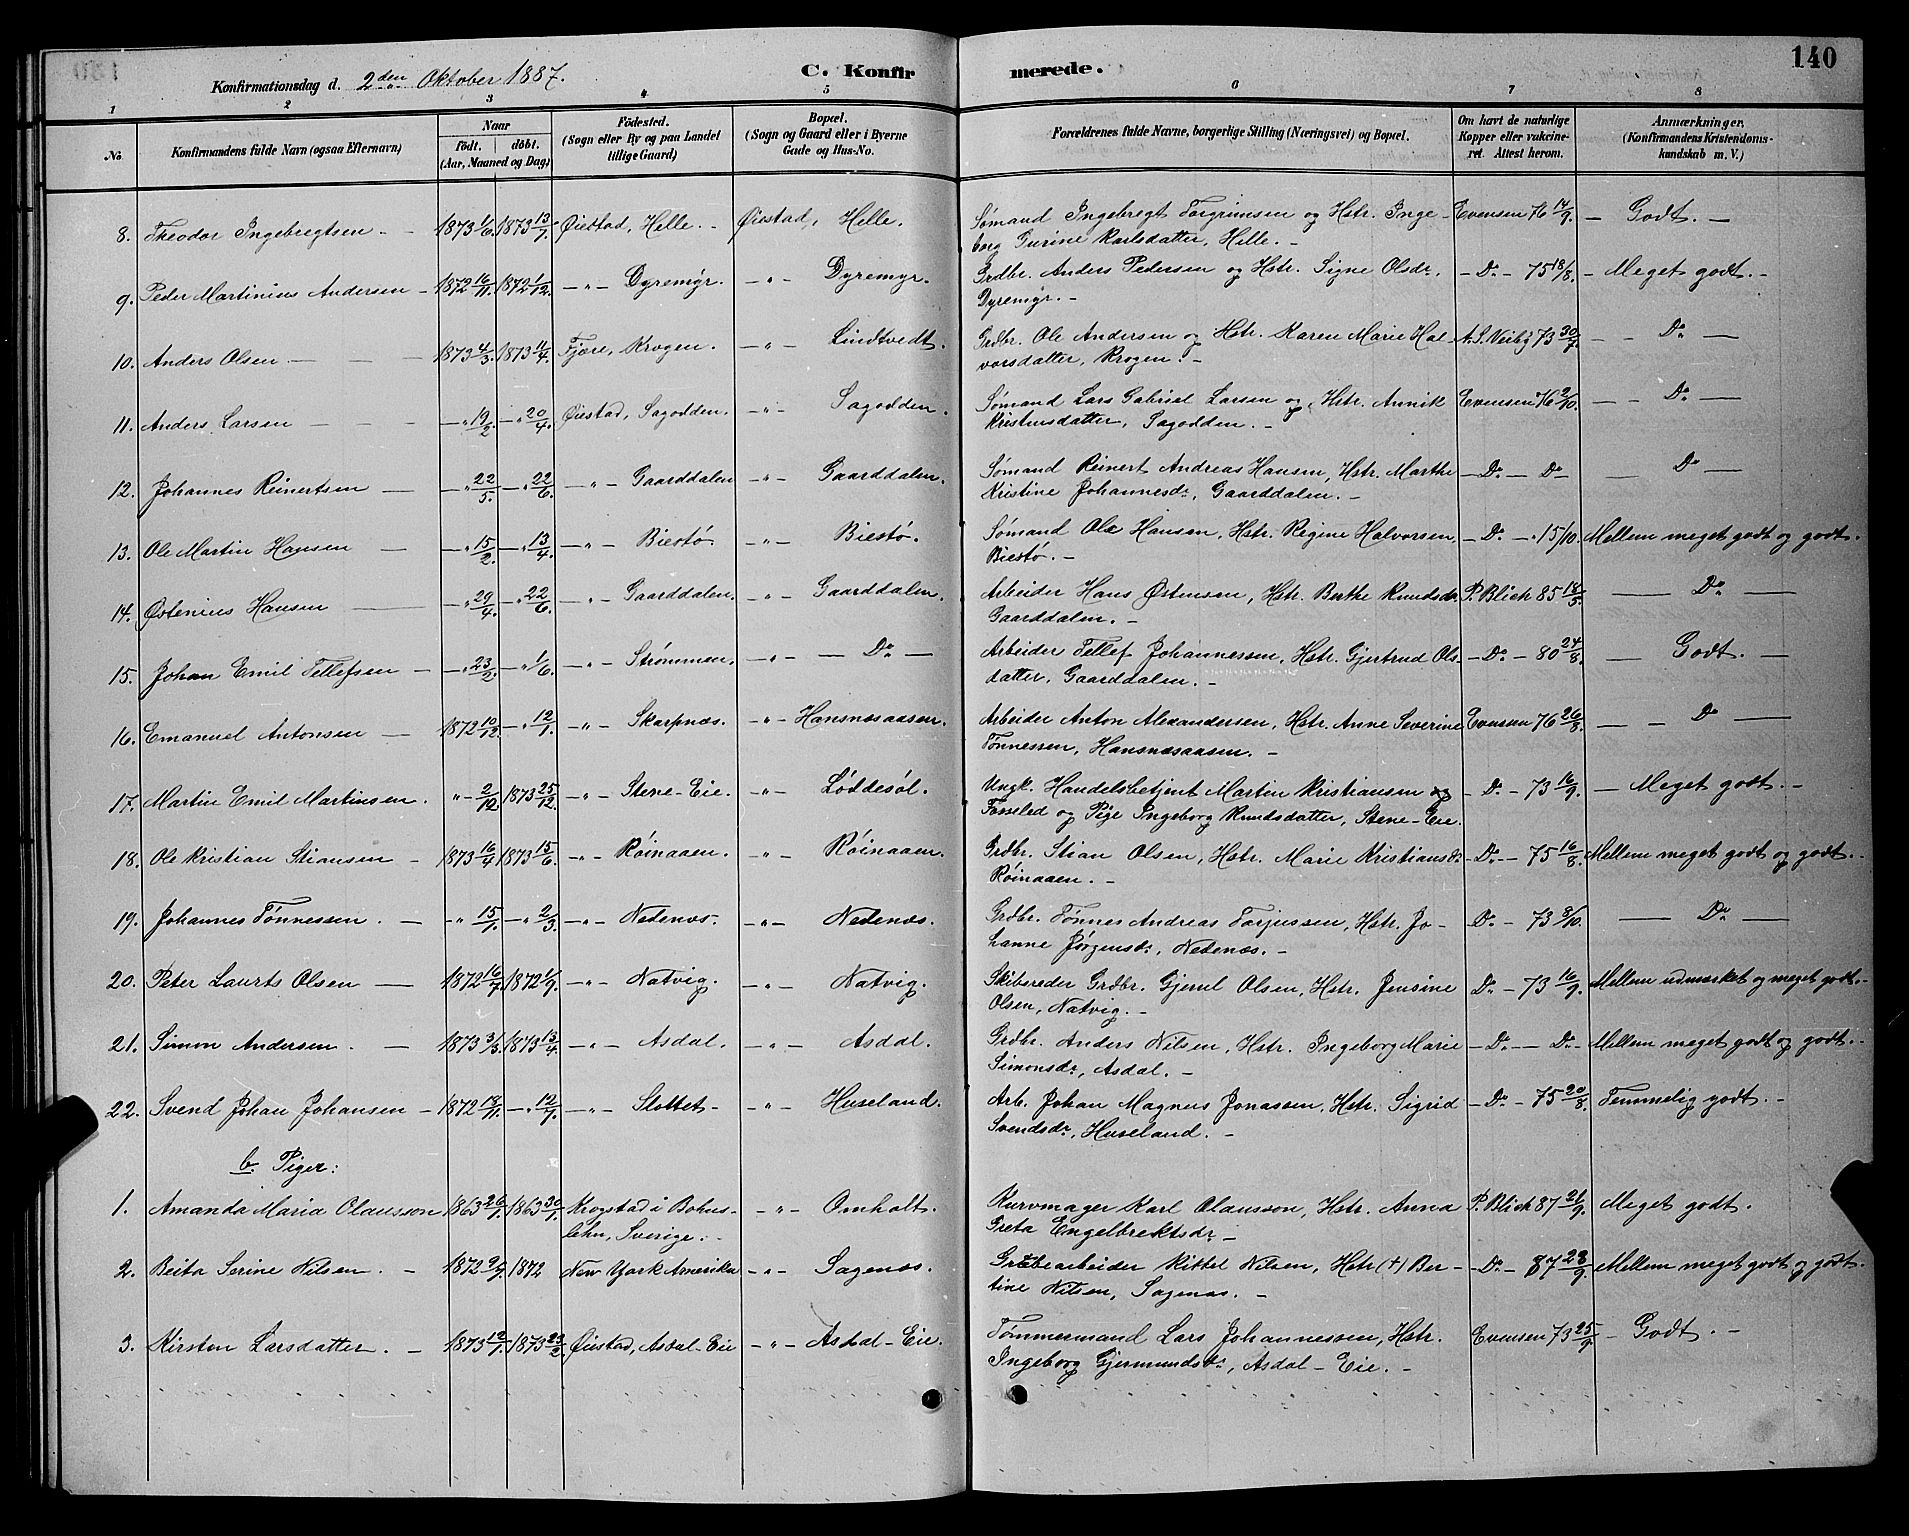 140
Konfirmationsdag d. 2den Oktober 1887.
C. Konfirmerede.
1 2 3 4 5 6 7 8
No. Konfirmandens fulde Navn (ogsaa Efternavn) Naar födt. döbt. (Aar, Maaned og Dag) Födested. (Sogn eller By og paa Landet tillige Gaard) Bopæl. (Sogn og Gaard eller i Byerne Gade og Hus-No. Forældrenes fulde Navne, borgerlige Stilling (Næringsvei) og Bopæl. Om havt de naturlige Kopper eller vaksineret. Attest herom. Anmærkninger. (Konfirmandens Kristendomskundskab m. V.)
8. Theodor Ingebregtsen - - 1873 1/6 1873 13/7 Øiestad, Helle. - Øiestad, Helle. Sømand Ingebregt Torgrimsen og Hstr. Inge- Evensen 76 14/9. - Godt. -
borg Gurine Karlsdatter, Helle. -
9. Peder Martinius Andersen - 1872 16/11. 1872 1/12. -"- Dyremyr. -"- Dyremyr. Grdbr. Anders Pedersen og Hstr. Signe Olsdr. - Do - 75 18/8. - Meget godt. -
Dyremyr. -
10. Anders Olsen - - - 1873 4/3. 1873 11/4. Fjære, Krogen. -"- Lindtvedt. Grdbr. Ole Andersen og Hstr. Karen Marie Hal- A.S. Neiby 73 30/7. - - Do -
vorsdatter, Krogen. -
11. Anders Larsen - - - -" 19/2 -" 20/4. Øiestad, Sagodden. -"- Sagodden. Sømand Lars Gabriel Larsen og Hstr. Annik Evensen 76 2/10. - - Do -
Kristensdatter, Sagodden. -
12. Johannes Reinertsen - -" 22/5. -" 22/6. -"- Gaarddalen -"- Gaarddalen. Sømand Reinert Andreas Hansen, Hstr. Marthe - Do - Do - Do -
Kristine Johannesdr., Gaarddalen. -
13. Ole Martin Hansen - -" 15/2. -" 13/4. -"- Biestø. -"- Biestø. Sømand Ole Hansen, Hstr. Regine Halvorsen - Do - " 15/10. Mellem meget godt og godt.
Biestø. -
14. Østenius Hansen - -" 29/4. -" 22/6. -"- Gaarddalen. -"- Gaarddalen. Arbeider Hans Østensen, Hstr. Berthe Knudsdr. P. Blich 85 18/5. - Do -
Gaarddalen. -
15. Johan Emil Tellefsen - -" 23/2. -" 1/6. -"- Strømmen. -"- - Do - Arbeider Tellef Johannessen, Hstr. Gjertrud Ols- - Do - 80 24/8. - Godt. -
datter, Gaarddalen. -
16. Emanuel Antonsen - 1872 10/12. -" 12/1. -"- Skarpnæs. -"- Hansnæsaasen. Arbeider Anton Alexandersen, Hstr. Anne Severine Evensen 76 26/8. - - Do -
Tønnessen, Hansnæsaasen. -
17. Martin Emil Martinsen. "- 2/12 1873 25/12. -"- Stene-Eie. -"- Løddesøl. Ungk. Handelsbetjent Martin Kristiansen og - Do - 73 16/9. - Meget godt. -
Fosseled og Pige Ingeborg Knudsdatter, Stene-Eie.
18. Ole Kristian Stiansen - 1873 16/4 1873 15/6. -"- Røinaaen. -"- Røinaaen. Grdbr. Stian Olsen, Hstr. Marie Kristiansdr. - Do - 75 16/8. Mellem meget godt og godt. -
Røinaaen. -
19. Johannes Tønnessen. - -" 15/1. -" 2/3. -"- Nedenæs. -"- Nedenæs. Grdbr. Tønnes Andreas Torjussen, Hstr. Jo- - Do - 73 8/10. - Do -
hanne Jørgensdr., Nedenæs. -
20. Peter Laurts Olsen - 1872 16/7. 1872 1/9. -"- Natvig. -"- Natvig. Skibsreder Grdbr. Gjerul Olsen, Hstr. Jensine Do - 73 16/9. Mellem udmærket og meget godt. -
Olsen, Natvig. -
21. Simon Andersen. - 1873 3/3. 1873 13/4. -"- Asdal. -"- Asdal. Grdbr. Anders Nilsen, Hstr. Ingeborg Marie - Do - Do - Mellem meget godt og godt. -
Simonsdr., Asdal. -
22. Svend Johan Johansen - 1872 18/11. -" 12/1. -"- Slottet -"- Huseland. Arb. Johan Magnus Jonassen, Hstr. Sigrid - Do - 75 20/8. Temmelig godt. -
Svendsdr., Huseland. -
b. Piger:
1. Amanda Maria Olausson 1863 26/1. 1863 30/1. Krogstad i Bohus- -"- Omholt. Kurvmager Karl Olausson, Hstr. Anna P. Blich 87 21/9. Meget godt.
lehn, Sverige. - Greta Engelbrektsdr. -
2. Beita Serine Nilsen. - 1872 9/9. 1872 New York Amerika -"- Sagenæs. Grubearbeider Kittel Nilsen, Hstr (+) Ber- - Do - 87 23/9. Mellem meget godt og godt.
tine Nilsen, Sagenæs. -
3. Kirsten Larsdatter. - 1873 12/1. 1873 23/2 Øiestad, Asdal-Eie -"- Asdal-Eie. Tømmermand Lars Johannessen, Hstr. Evensen 73 25/9. - Godt. -
Ingeborg Gjermundsdr., Asdal-Eie. -